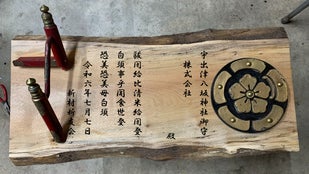 宇出津八坂神社御守
株式会社
殿
聞給比清米給閉登
白須事乎聞食世登
恐美恐美母白須
令和六年七月七日
新村祈友会